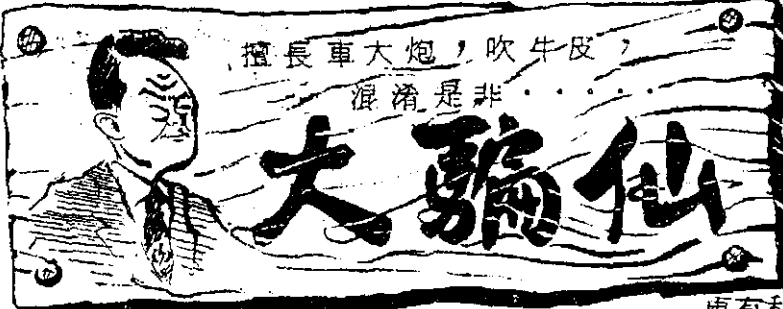 擅長車大炮，吹牛皮，
混淆是非．．．．．
大騙仙